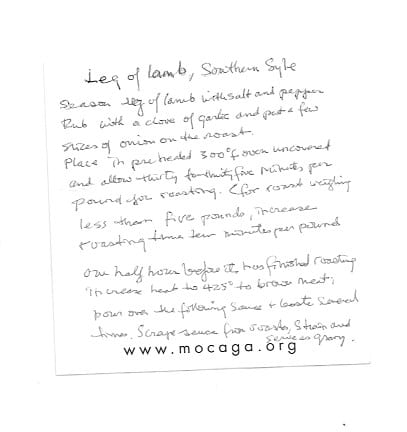 Leg of lamb, Southern Syle
Season leg of lamb with salt and pepper
Rub with a clove of garlic and put a few
slices of onion on the roast.
Place in preheated 300°F oven uncovered
and allow thirty to thirty five minutes per
pound for roasting. (for roast weighing
less than five pounds, increase
roasting time ten minutes per pound
One half hour before it has finished roasting
increase heat to 425° to brown meat;
pour over the following sauce + baste several
times. Scrape sauce from roaster, strain and
serve as gravy.
www.mocaga.org